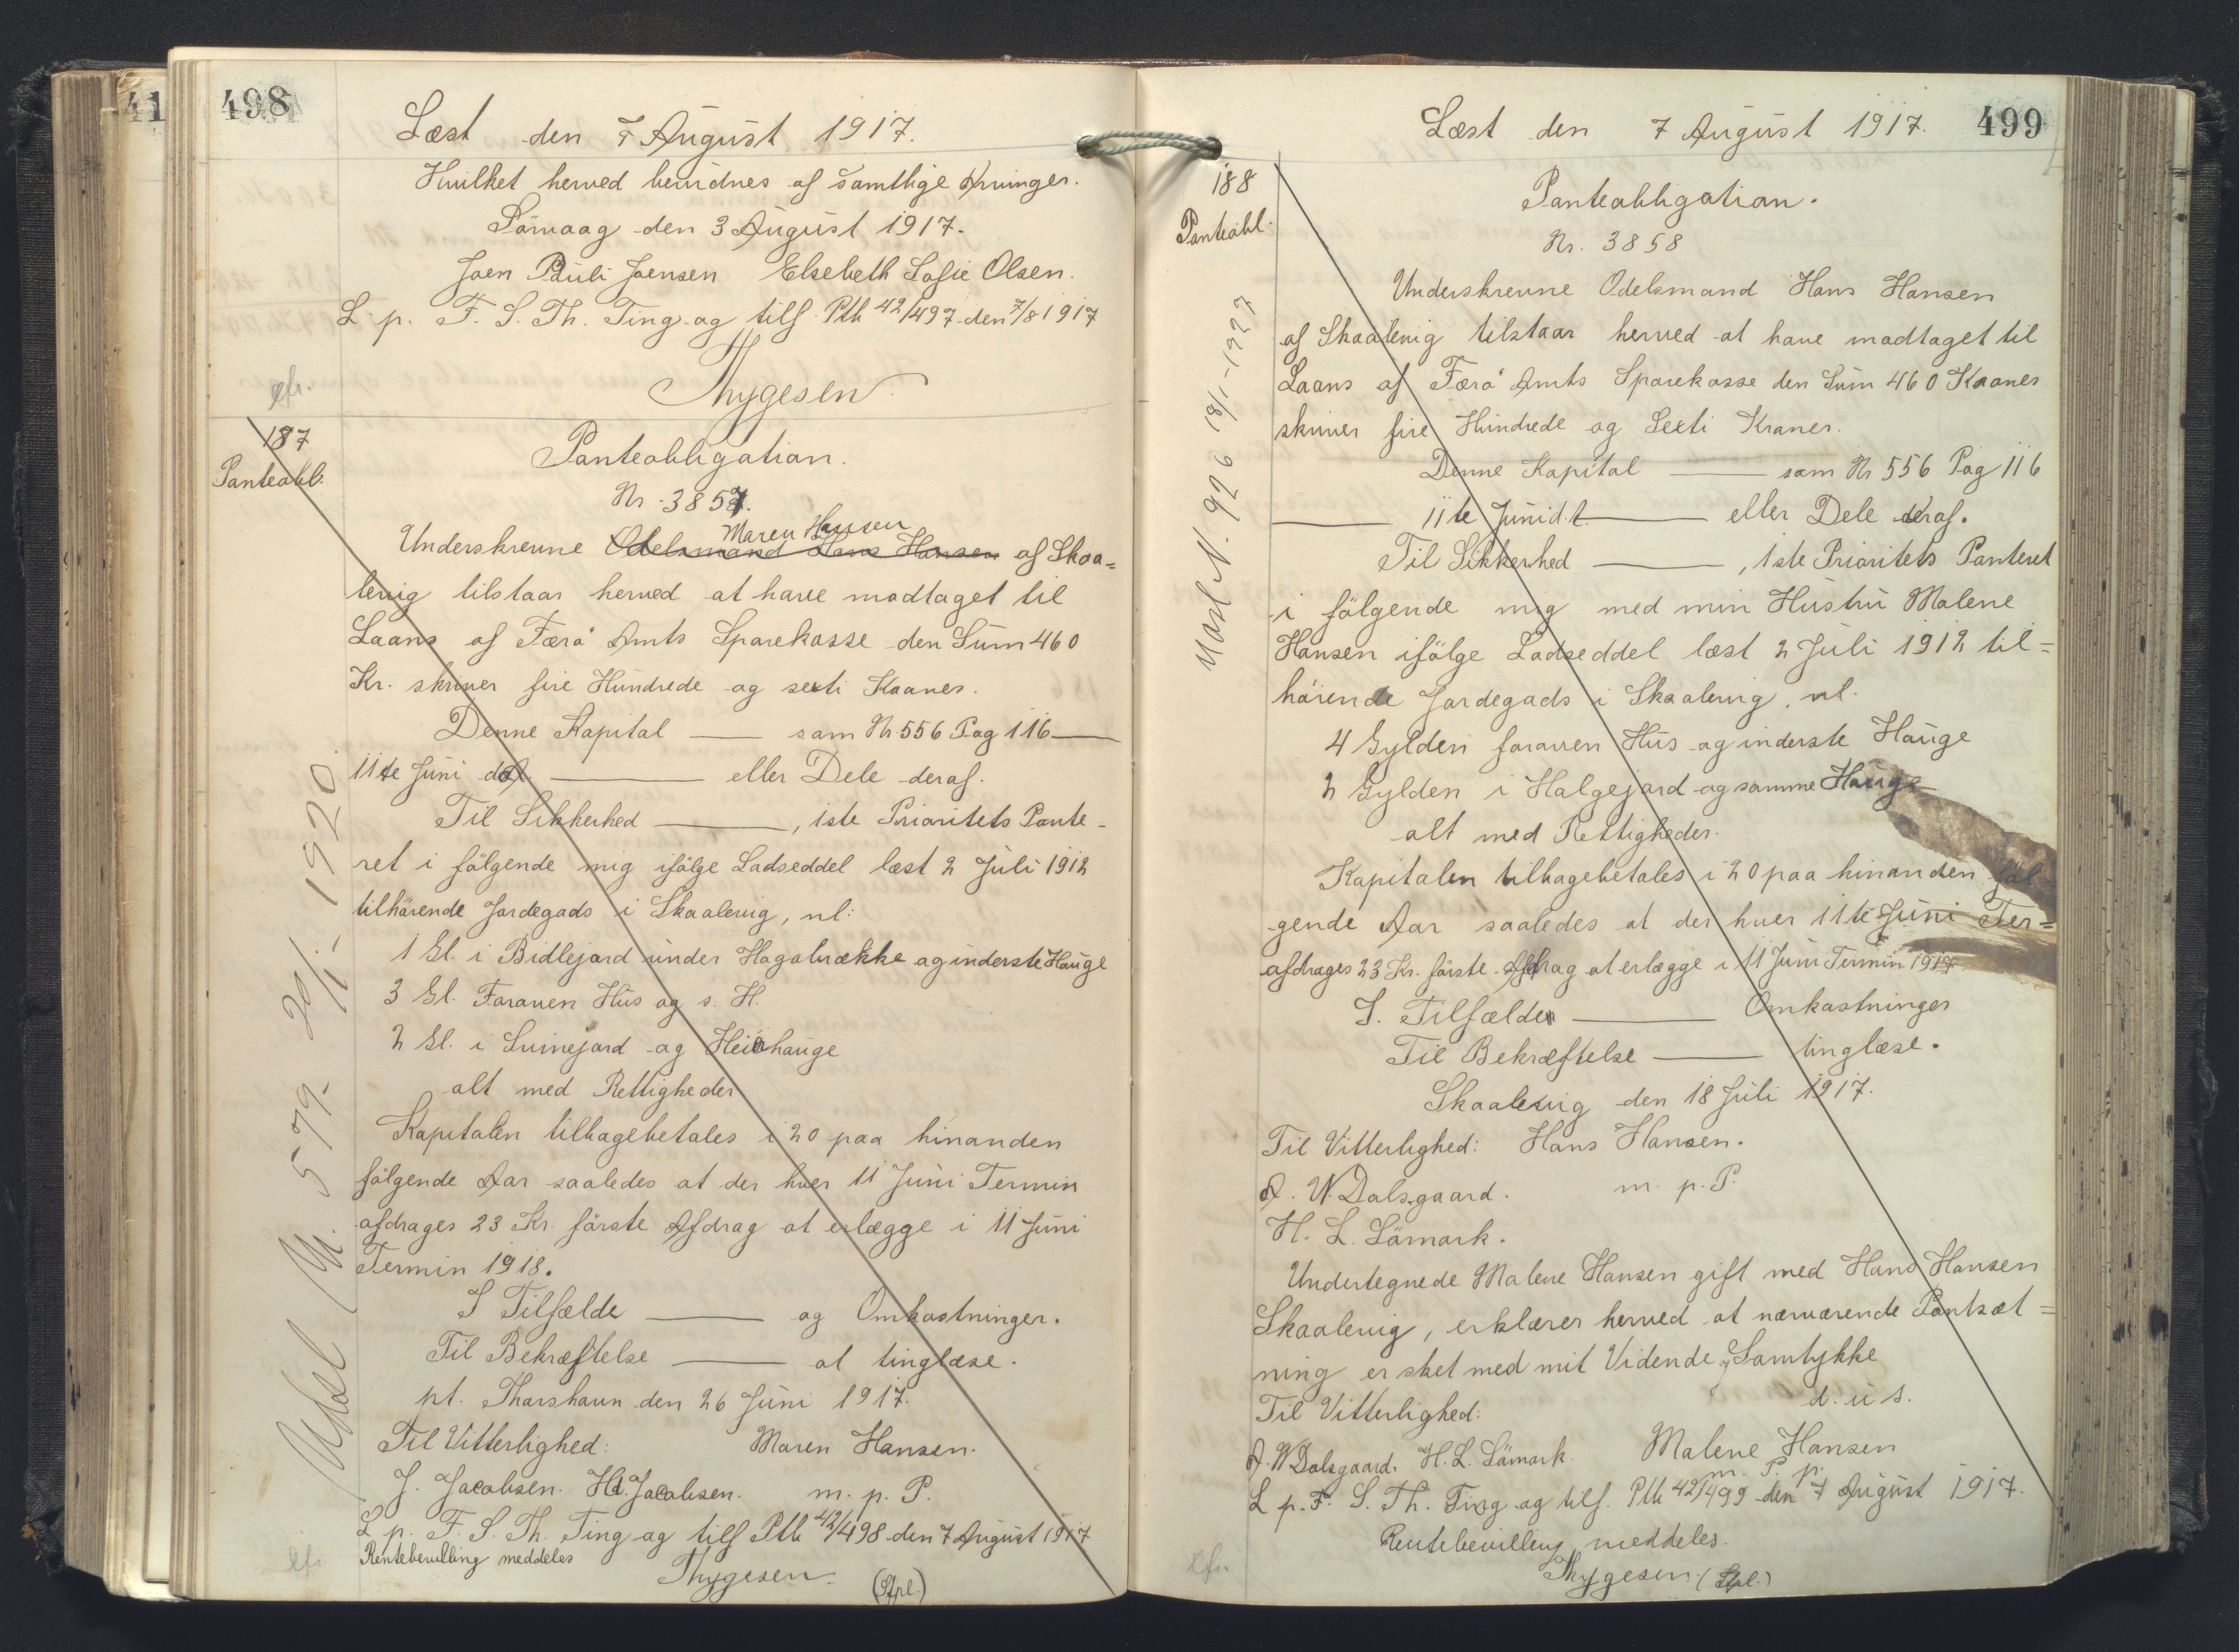 41
498
Læst den 7 August 1917.
Hvilket herved bevidnes af samtlige Arvinger.
Sörvaag den 3 August 1917.
Joen Pauli Joensen Elsebeth Sofie Olsen.
L. p. F. S. Th. Ting og tilf. Ptb 42/497 den 7/8 1917
Thygesen
cfr.
187
Panteobl.
Panteobligation.
Nr. 3857.
Maren Hansen
Underskrevne Odelsmand Hans Hansen af Skaa=
levig tilstaar herved at have modtaget til
Laans af Færø Amts Sparekasse den Sum 460
Kr. skriver fire Hundrede og sexti Kroner.
Denne Kapital — som Nr 556 Pag 116 —
11te Juni d.A. — eller Dele deraf.
Til Sikkerhed —, 1ste Prioritets Pante-
ret i følgende mig ifølge Lodseddel læst 2 Juli 1912
tilhörende Jordegods i Skaalevig, nl:
1 Gl. i Bidlejord under Hagabrække og inderste Hauge
3 Gl. Foroven Hus og s. H.
2 Gl. i Suinejord og Heiahauge
alt med Rettigheder
Kapitalen tilbagebetales i 20 paa hinanden
fölgende Aar saaledes at der hver 11 Juni Termin
afdrages 23 Kr. förste Afdrag at erlægge i 11 Juni
Termin 1918.
I Tilfælde — og Omkostninger.
Til Bekræftelse — at tinglæse.
pt. Thorshavn den 26 Juni 1917.
Til Vitterlighed: Maren Hansen.
J. Jacobsen. H.d. Jacobsen. m. p. P.
L. p. F. S. Th. Ting og tilf Ptb 42/498 den 7 August 1917
Rentebevilling meddeles
Thygesen. (Stpl.)
cfr.
Udsl Nr. 579. 20/1- 1920.
499
Læst den 7 August 1917.
188
Panteobl.
Panteobligation.
Nr. 3858
Underskrevne Odelsmand Hans Hansen
af Skaalevig tilstaar herved at have modtaget til
Laans af Færø Amts Sparekasse den Sum 460 Kroner
skriver fire Hundrede og Sexti Kroner.
Denne Kapital — som Nr 556 Pag 116
— 11te Juni d.A. — eller Dele deraf.
Til Sikkerhed —, 1ste Prioritets Panteret
i fölgende mig med min Hustru Malene
Hansen ifölge Lodseddel læst 2 Juli 1912 til=
hörende Jordegods i Skaalevig, nl.
4 Gylden foroven Hus og inderste Hauge
2 Gylden i Halgejord og samme Hauge
alt med Rettigheder.
Kapitalen tilbagebetales i 20 paa hinanden föl
gende Aar saaledes at der hver 11te Juni Ter=
afdrages 23 Kr. förste Afdrag at erlægge i 11 Juni Termin 1917
I. Tilfælde — Omkostninger
Til Bekræftelse — tinglæse.
Skaalevig den 18 Juli 1917.
Til Vitterlighed: Hans Hansen.
A. W. Dalsgaard. m. p. P.
H. L. Lämark.
Undertegnede Malene Hansen gift med Hans Hansen
Skaalevig, erklærer herved at nærværende Pantsæt=
ning er sket med mit Vidende og Samtykke
d. u s.
Til Vitterlighed:
A. W Dalsgaard. H. L. Lämark. Malene Hansen
m. P. p.
L p. F. S. Th. Ting og tilf. Ptb 42/499 den 7 August 1917.
Rentebevilling meddeles.
Thygesen. (Stpl.)
cfr.
Udsl N. 926 18/1-1927